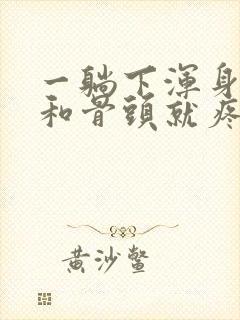 一躺下渾身
和骨頭就疼
黄沙鳖